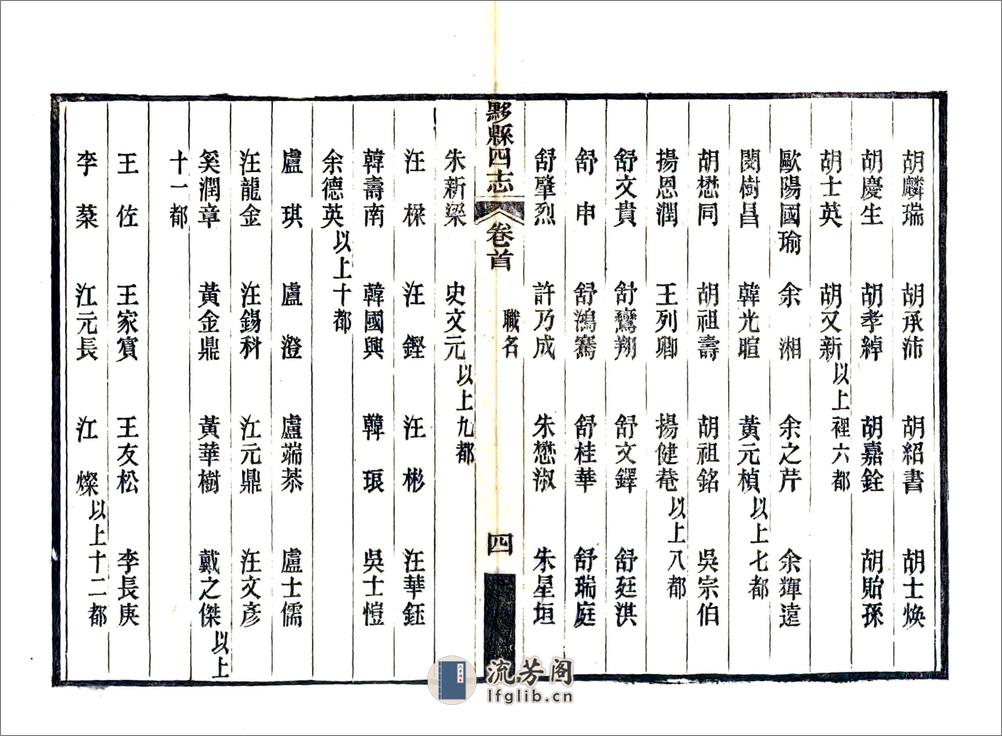 胡麟瑞　胡承沛　胡紹書　胡士煥
胡慶生　胡孝綽　胡嘉銓　胡貽孫
胡士英　胡又新以上裡六都
歐陽國瑜　余湘　余之芹　余輝遠
閔樹昌　韓光暄　黃元楨以上七都
胡懋同　胡祖壽　胡祖銘　吳宗伯
揚恩潤　王列卿　揚健菴以上八都
舒文貴　舒鸞翔　舒文鐸　舒廷淇
舒申　舒鴻騫　舒桂華　舒瑞庭
舒肇烈　許乃成　朱懋淑　朱星垣
黟縣四志　卷首　職名　四
朱新梁　史文元以上九都
汪檪　汪鏗　汪彬　汪華鈺
韓壽南　韓國興　韓琅　吳士愷
余德英以上十都
盧琪　盧澄　盧端棻　盧士儒
汪龍金　汪錫科　江元鼎　汪文彥
奚潤章　黃金鼎　黃華樹　戴之傑以上
十一都
王佐　王家賓　王友松　李長庚
李棻　江元長　江燦以上十二都
流芳阁
lfglib.cn